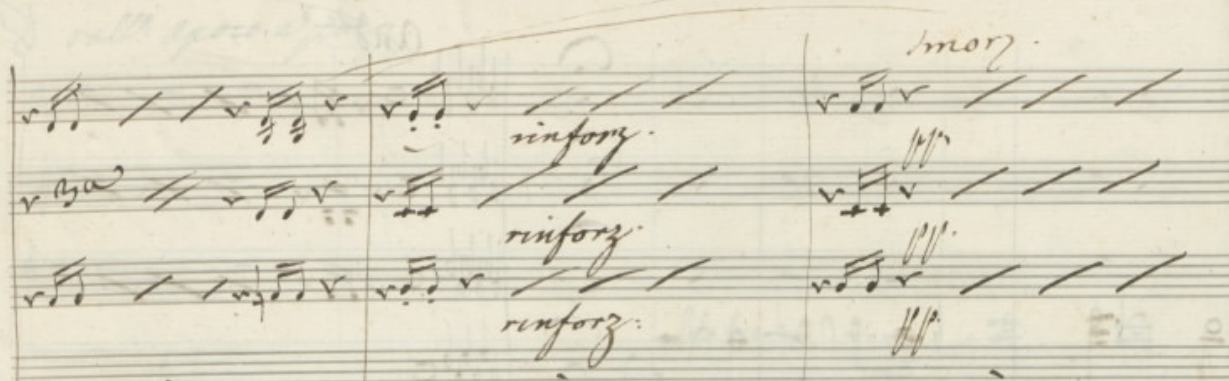 smorz.
rinforz.
pp.
3a
rinforz.
pp.
rinforz.
pp.